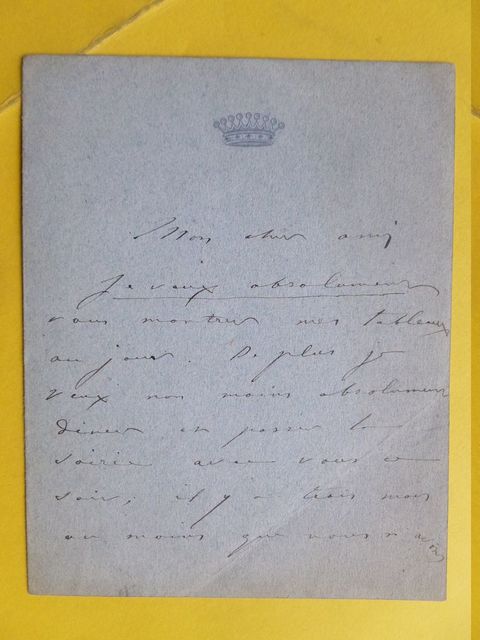 Mon cher ami
Je veux absolument
vous montrer mes tableaux
au jour. De plus je
veux non moins absolument
diner et passer la
soirée avec vous ce
soir, il y a trois mois
au moins que nous n'avons